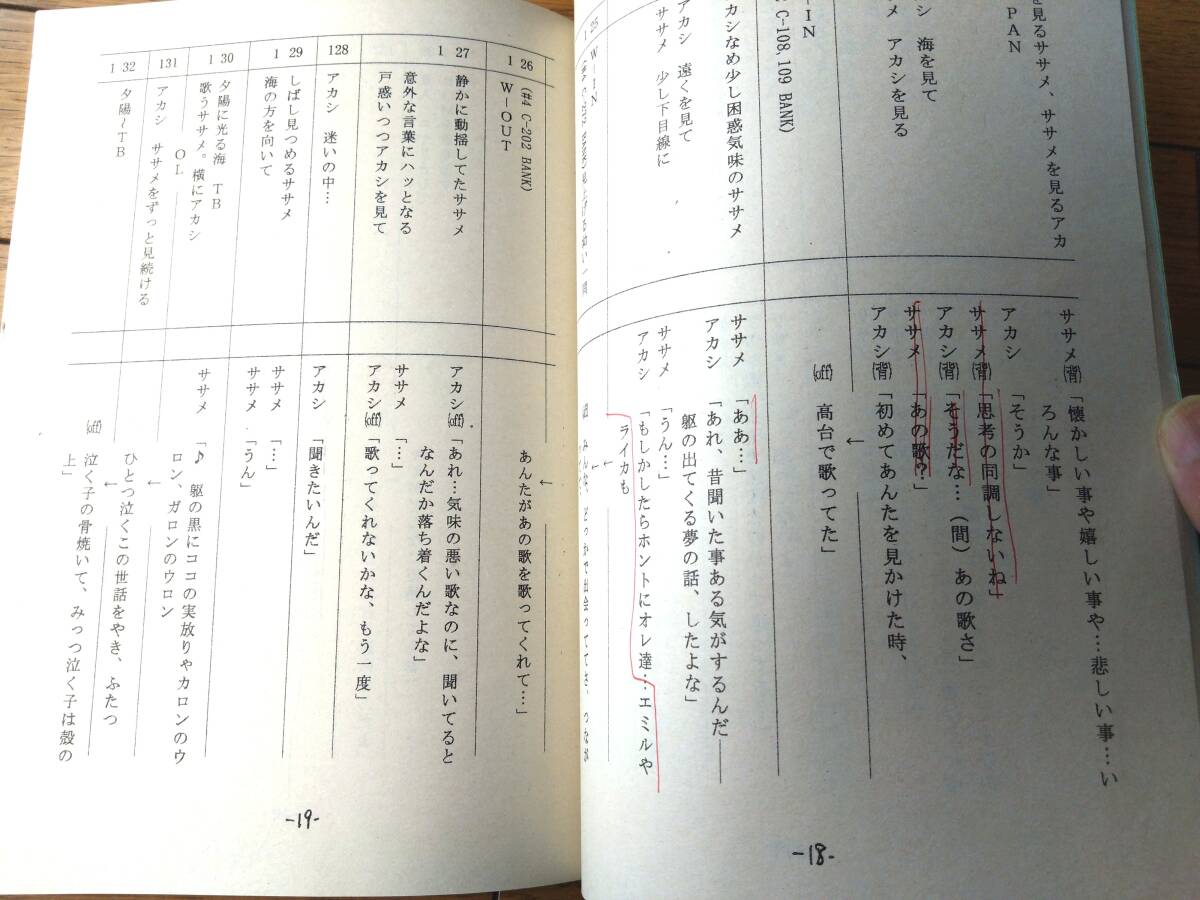 を見るササメ、ササメを見るアカ
PAN
シ 海を見て
メ アカシを見る
ササメ(背)「懐かしい事や嬉しい事や…悲しい事…い
ろんな事」
アカシ 「そうか」
ササメ(背)「思考の同調しないね」
アカシ(背)「そうだな…(間)あの歌さ」
ササメ 「あの歌?」
アカシ(背)「初めてあんたを見かけた時、
-IN
C-108, 109 BANK)
(off) 高台で歌ってた」
←
カシなめ少し困惑気味のササメ
アカシ 遠くを見て
ササメ 少し下目線に
ササメ 「ああ…」
アカシ 「あれ、昔聞いた事ある気がするんだ――
躯の出てくる夢の話、したよな」
ササメ 「うん…」
アカシ 「もしかしたらホントにオレ達…エミルや
ライカも
←
125
W-IN
-18-
126
(#4 C-202 BANK)
W-OUT
←
あんたがあの歌を歌ってくれて…」
127
静かに動揺してたササメ
意外な言葉にハッとなる
戸惑いつつアカシを見て
アカシ(off)「あれ…気味の悪い歌なのに、聞いてると
なんだか落ち着くんだよな」
ササメ 「…」
アカシ(off)「歌ってくれないかな、もう一度」
128
アカシ 迷いの中…
アカシ 「聞きたいんだ」
129
しばし見つめるササメ
海の方を向いて
ササメ 「…」
ササメ 「うん」
130
夕陽に光る海 TB
歌うササメ。横にアカシ
OL
ササメ 「♪ 躯の黒にココの実放りやカロンのウ
ロン、ガロンのウロン
131
アカシ ササメをずっと見続ける
←
ひとつ泣くこの世話をやき、ふたつ
132
夕陽~TB
←
(off) 泣く子の骨焼いて、みっつ泣く子は殻の
上」
-19-